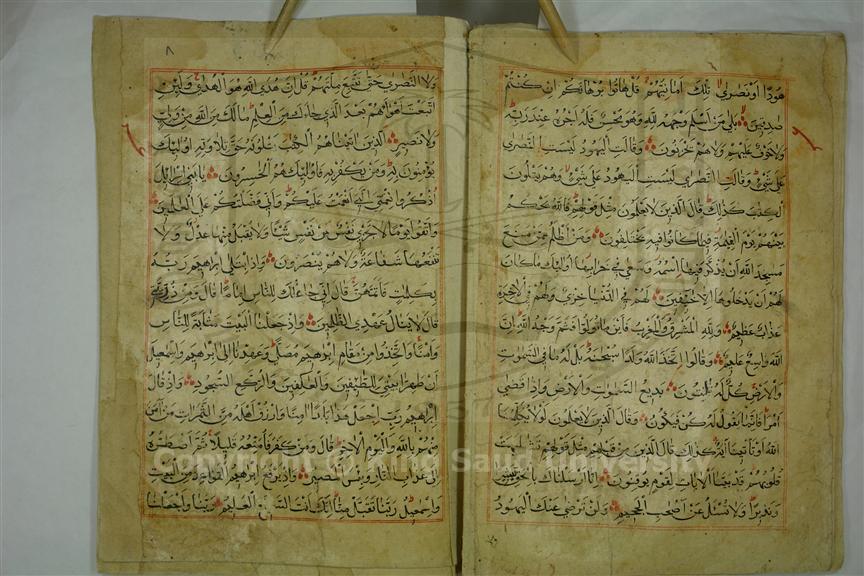 هودا او نصرى تلك امانيهم قل هاتوا برهانكم ان كنتم
صدقين بلى من اسلم وجهه لله وهو محسن فله اجره عند ربه
ولا خوف عليهم ولا هم يحزنون وقالت اليهود ليست النصرى
على شئ وقالت النصرى ليست اليهود على شئ وهم يتلون
الكتب كذلك قال الذين لا يعلمون مثل قولهم فالله يحكم
بينهم يوم القيمة فيما كانوا فيه يختلفون ومن اظلم ممن منع
مسجد الله ان يذكر فيها اسمه وسعى في خرابها اولئك ما كان
لهم ان يدخلوها الا خائفين لهم في الدنيا خزى ولهم في الاخرة
عذاب عظيم ولله المشرق والمغرب فاينما تولوا فثم وجه الله ان
الله واسع عليم وقالوا اتخذ الله ولدا سبحنه بل له ما في السموات
والارض كل له قانتون بديع السموات والارض واذا قضى
امرا فانما يقول له كن فيكون وقال الذين لا يعلمون لولا يكلمنا
الله او تأتينا اية كذلك قال الذين من قبلهم مثل قولهم تشابهت
قلوبهم قد بينا الايات لقوم يوقنون انا ارسلناك بالحق بشيرا
ونذيرا ولا تسئل عن اصحب الجحيم ولن ترضى عنك اليهود
٨
ولا النصرى حتى تتبع ملتهم قل ان هدى الله هو الهدى ولئن
اتبعت اهوائهم بعد الذي جاءك من العلم مالك من الله من ولي
ولا نصير الذين اتيناهم الكتب يتلونه حق تلاوته اولئك
يؤمنون به ومن يكفر به فاولئك هم الخسرون يا بني اسرائيل
اذكروا نعمتي التي انعمت عليكم واني فضلتكم على العالمين
واتقوا يوما لا تجزى نفس عن نفس شيئا ولا يقبل منها عدل ولا
تنفعها شفاعة ولا هم ينصرون واذ ابتلى ابراهيم ربه
بكلمات فاتمهن قال اني جاعلك للناس اماما قال ومن ذريتي
قال لا ينال عهدي الظلمين واذ جعلنا البيت مثابة للناس
وامنا واتخذوا من مقام ابراهيم مصلى وعهدنا الى ابراهيم واسمعيل
ان طهرا بيتي للطائفين والعاكفين والركع السجود واذ قال
ابراهيم رب اجعل هذا بلدا امنا وارزق اهله من الثمرات من امن
منهم بالله واليوم الاخر قال ومن كفر فامتعه قليلا ثم اضطره
الى عذاب النار وبئس المصير واذ يرفع ابراهيم القواعد من البيت
واسمعيل ربنا تقبل منا انك انت السميع العليم ربنا واجعلنا
Copyright © King Saud University